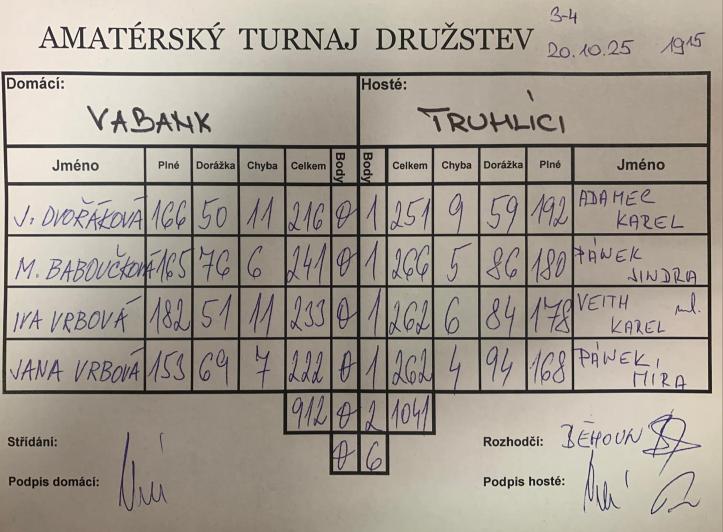 3-4
AMATÉRSKÝ TURNAJ DRUŽSTEV 20.10.25 1915
Domácí: Hosté:
VABANK TRUHLÍCI
Jméno Plné Dorážka Chyba Celkem Body Body Celkem Chyba Dorážka Plné Jméno
J. DVOŘÁKOVÁ 166 50 11 216 0 1 251 9 59 192 ADAMEC KAREL
M. BABOUČKOVÁ 165 76 6 241 0 1 266 5 86 180 PÁNEK JINDRA
IVA VRBOVÁ 182 51 11 233 0 1 262 6 84 178 VEITH ml. KAREL
JANA VRBOVÁ 153 69 7 222 0 1 262 4 94 168 PÁNEK, MIRA
912 0 2 1041
0 6
Střídání: Rozhodčí: BĚHOUN
Podpis domácí: Podpis hosté: